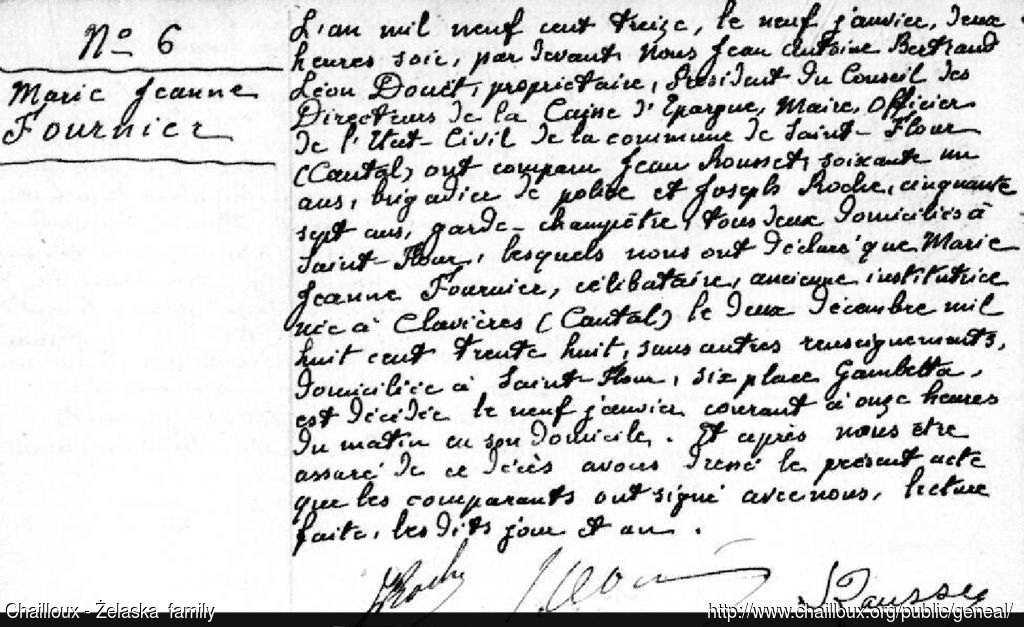 No 6
Marie Jeanne
Fournier
L'an mil neuf cent treize, le neuf janvier, deux
heures soir, par devant nous Jean Antoine Bertrand
Léon Douët, propriétaire, Président du Conseil des
Directeurs de la Caisse d'Epargne, Maire, Officier
de l'Etat-Civil de la commune de Saint-Flour
(Cantal) ont comparu Jean Rousset, soixante un
ans, brigadier de police et Joseph Roche, cinquante
sept ans, garde-champêtre, tous deux domiciliés à
Saint-Flour, lesquels nous ont déclaré que Marie
Jeanne Fournier, célibataire, ancienne institutrice
née à Clavières (Cantal) le deux décembre mil
huit cent trente huit, sans autres renseignements,
domiciliée à Saint-Flour, six place Gambetta,
est décédée le neuf janvier courant à onze heures
du matin en son domicile. Et après nous être
assuré de ce décès avons dressé le présent acte
que les comparants ont signé avec nous, lecture
faite, les dits jour et an.
JRoche
Chailloux - Żelaska family
http://www.chailloux.org/public/geneal/